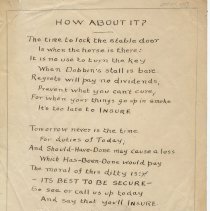 HOW ABOUT IT?
The time to lock the stable door
Is when the horse is there:
It is no use to turn the key
When Dobbin's stall is bare.
Regrets will pay no dividends,
Prevent what you can't cure,
For when your things go up in smoke
It's too late to INSURE
Tomorrow never is the time
For duties of Today,
And Should-Have-Done may cause a loss
Which Has-Been-Done would pay
The moral of this ditty is:
- IT'S BEST TO BE SECURE -
So see or call us up today
And say that you'll INSURE